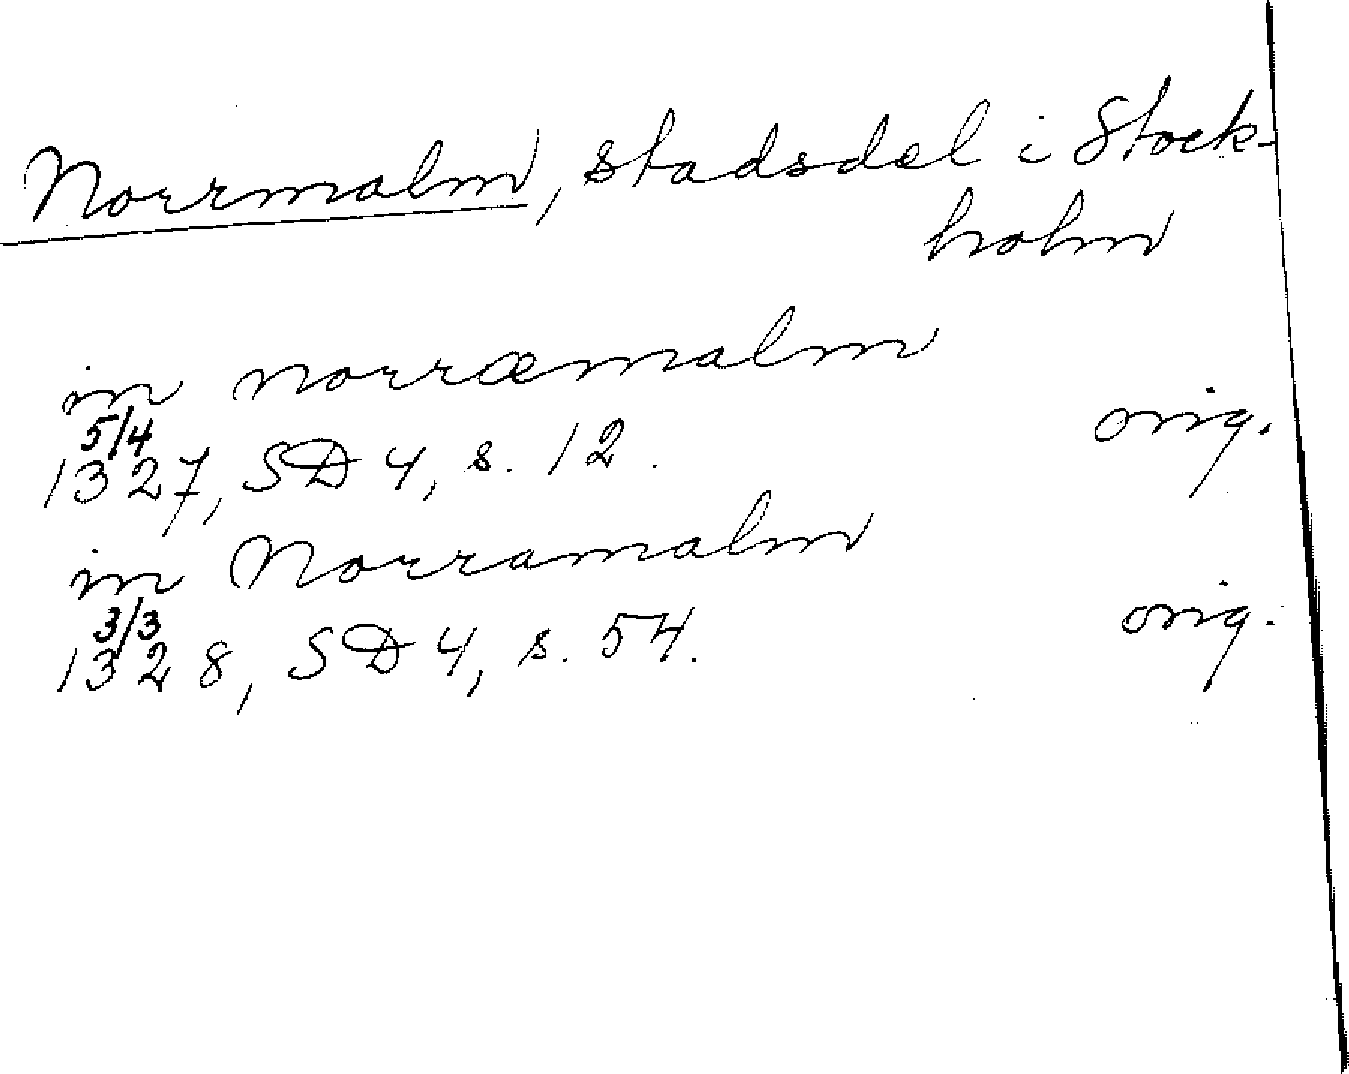 Norrmalm, stadsdel i Stock-
holm
in norræmalm
5/4
1327, SD 4, s. 12. orig.
in Norramalm
3/3
1328, SD 4, s. 54. orig.